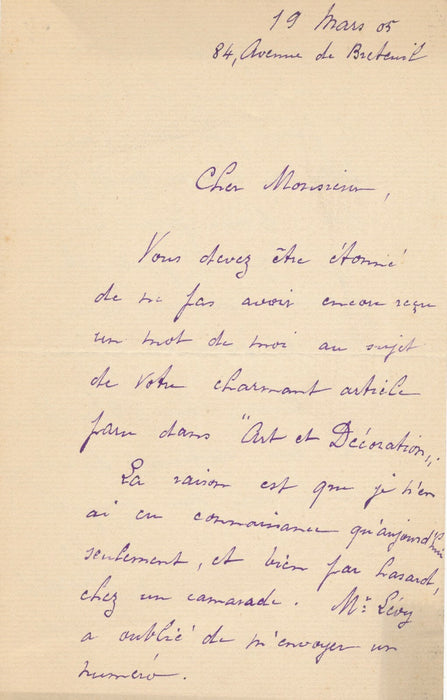 19 Mars 05
84, Avenue de Breteuil
Cher Monsieur,
Vous devez être étonné
de ne pas avoir encore reçu
un mot de moi au sujet
de votre charmant article
paru dans "Art et Décoration„.
La raison est que je n'en
ai eu connaissance qu'aujourd'hui
seulement, et bien par hasard,
chez un camarade. Mr Lévy
a oublié de m'envoyer un
numéro.